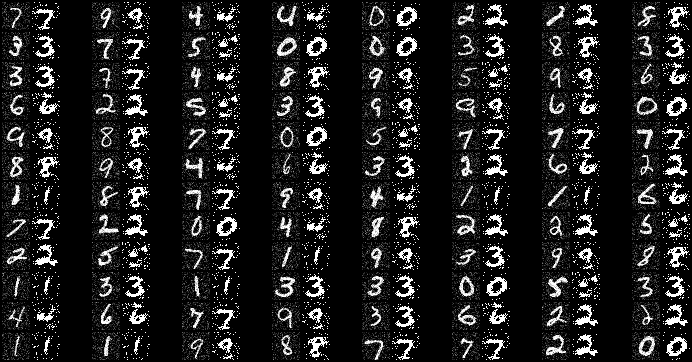 7 7 9 9 4 4 0 0 2 2 2 2 8 8
3 3 7 7 5 0 0 0 0 3 3 8 8 3 3
3 3 7 7 4 8 8 9 9 5 9 9 6 6
6 6 2 2 5 3 3 9 9 9 9 6 6 0 0
9 9 8 8 7 7 0 0 5 7 7 7 7 7 7
8 8 9 9 4 6 6 3 3 2 2 6 6 2 2
1 1 8 8 7 7 9 9 4 1 1 1 1 6 6
7 7 2 2 0 0 4 8 8 2 2 2 2 5
2 2 5 7 7 1 1 9 9 3 3 9 9 8 8
1 1 3 3 1 1 3 3 3 3 0 0 5 3 3
4 6 6 7 7 9 9 3 3 6 6 2 2 2 2
1 1 1 1 9 9 8 8 7 7 7 7 2 2 0 0